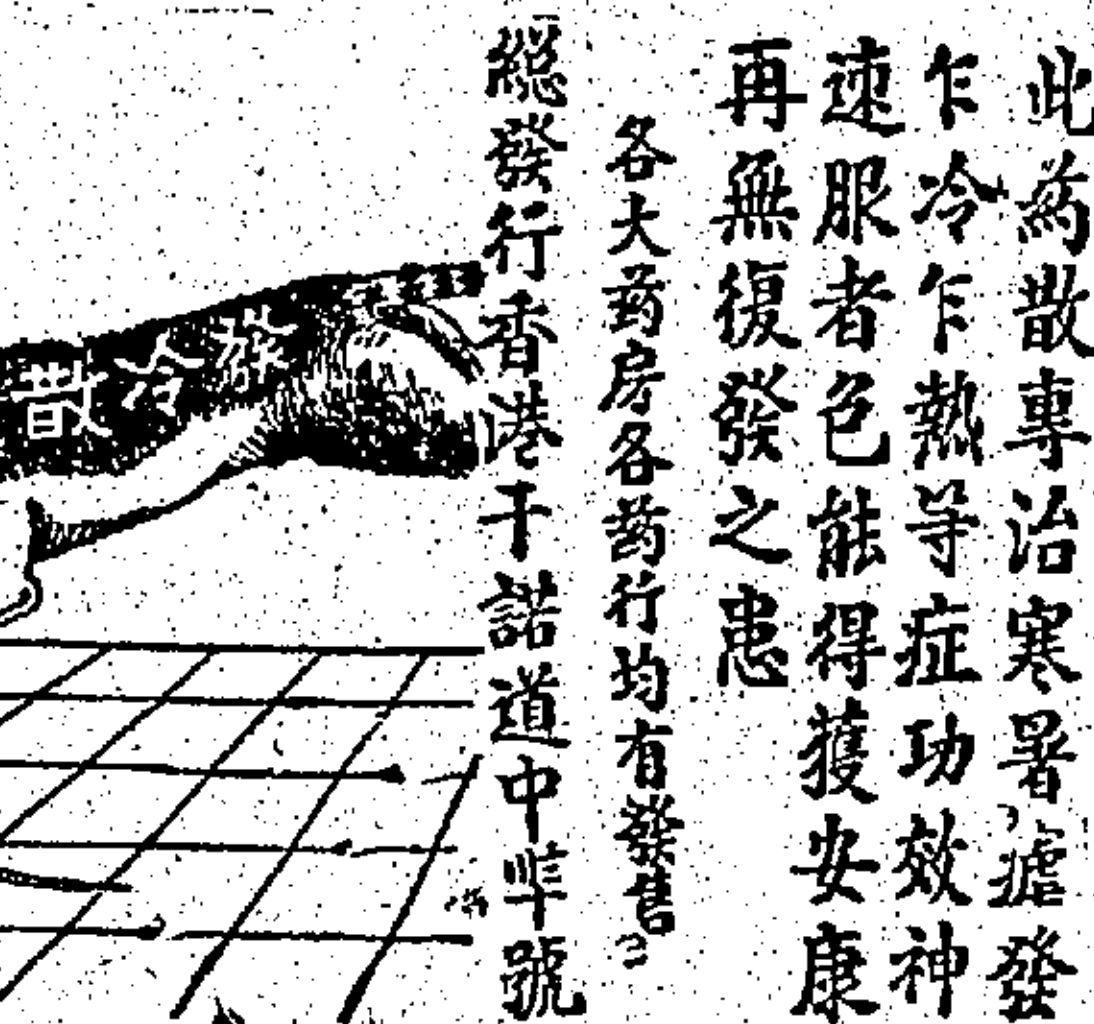 此葯散專治寒暑瘧發
乍冷乍熱等症功效神
速服者色能得獲安康
再無復發之患
各大葯房各葯行均有發售
總發行香港干諾道中號
冷散